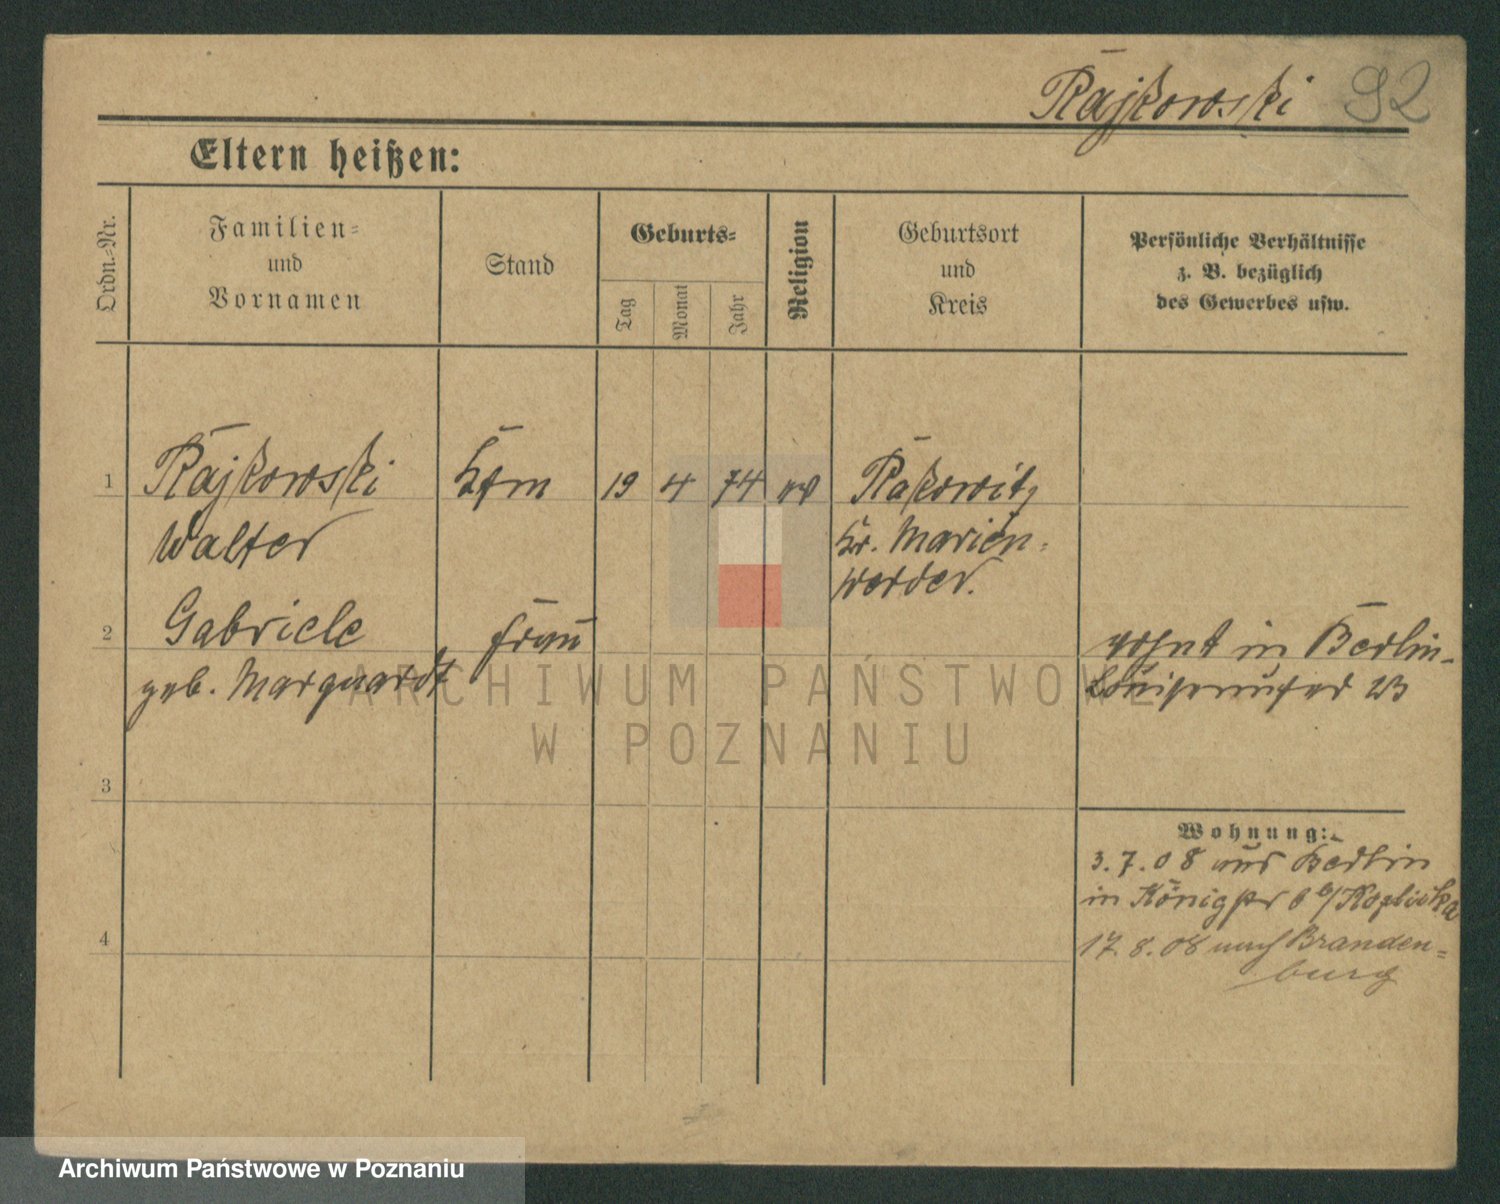 Rajkowski 92
Eltern heißen:
Ordn.-Nr.
Familien-
und
Vornamen
Stand
Geburts-
Tag
Monat
Jahr
Religion
Geburtsort
und
Kreis
Persönliche Verhältnisse
z. B. bezüglich
des Gewerbes usw.
1 Rajkowski Kfm 19 4 74 ev Rakowitz
Walter Kr. Marien-
werder.
2 Gabriele Frau wohnt in Berlin-
geb. Marquardt Louisenufer 23
3
Wohnung:
3.7.08 aus Berlin
in Königspl 6 b/
17.8.08 nach Branden-
burg
4
ARCHIWUM PAŃSTWOWE
W POZNANIU
Archiwum Państwowe w Poznaniu